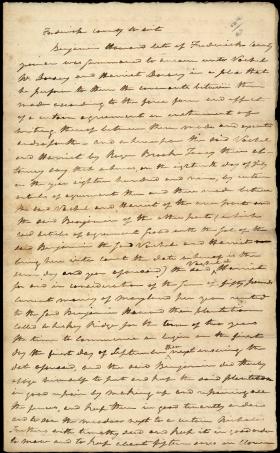 Frederick County to wit
Benjamin Howard late of Frederick County
yeoman was summoned to answer unto Vachel
W. Dorsey and Harriet Dorsey in a plea that
he perform to them the covenants between them
made according to the force form and effect
of a certain agreement or instrument of
writing thereof between them made and
and whereupon the said Vachel
and Harriet by Roger Brooke Taney their at-
torney say that whereas on the day of July
in the year eighteen hundred and nine, by certain
articles of agreement then and there made between
the said Vachel and Harriet of the one part and
the said Benjamin of the other part, (which
said articles of agreement sealed with the seal of the
said Benjamin the said Vachel and Harriet
bring here into court the date whereof is the
same day and year aforesaid) the said Vachel & Harriet
for and in consideration of the sum of fifty pounds
current money of Maryland per year rented
to the said Benjamin Howard their plantation
called whiskey Ridge for the term of two years
the time to commence on
day the first day of September then next ensuing the
date aforesaid, and the said Benjamin did thereby
oblige himself to put and keep the said plantation
in good repair by making up and repairing all
the fences, and keep them in good tenantly order
and to sow the meadow next to a certain Nicholas
with timothy seed and keep it in good order
to mow and to keep about fifteen acres in clover